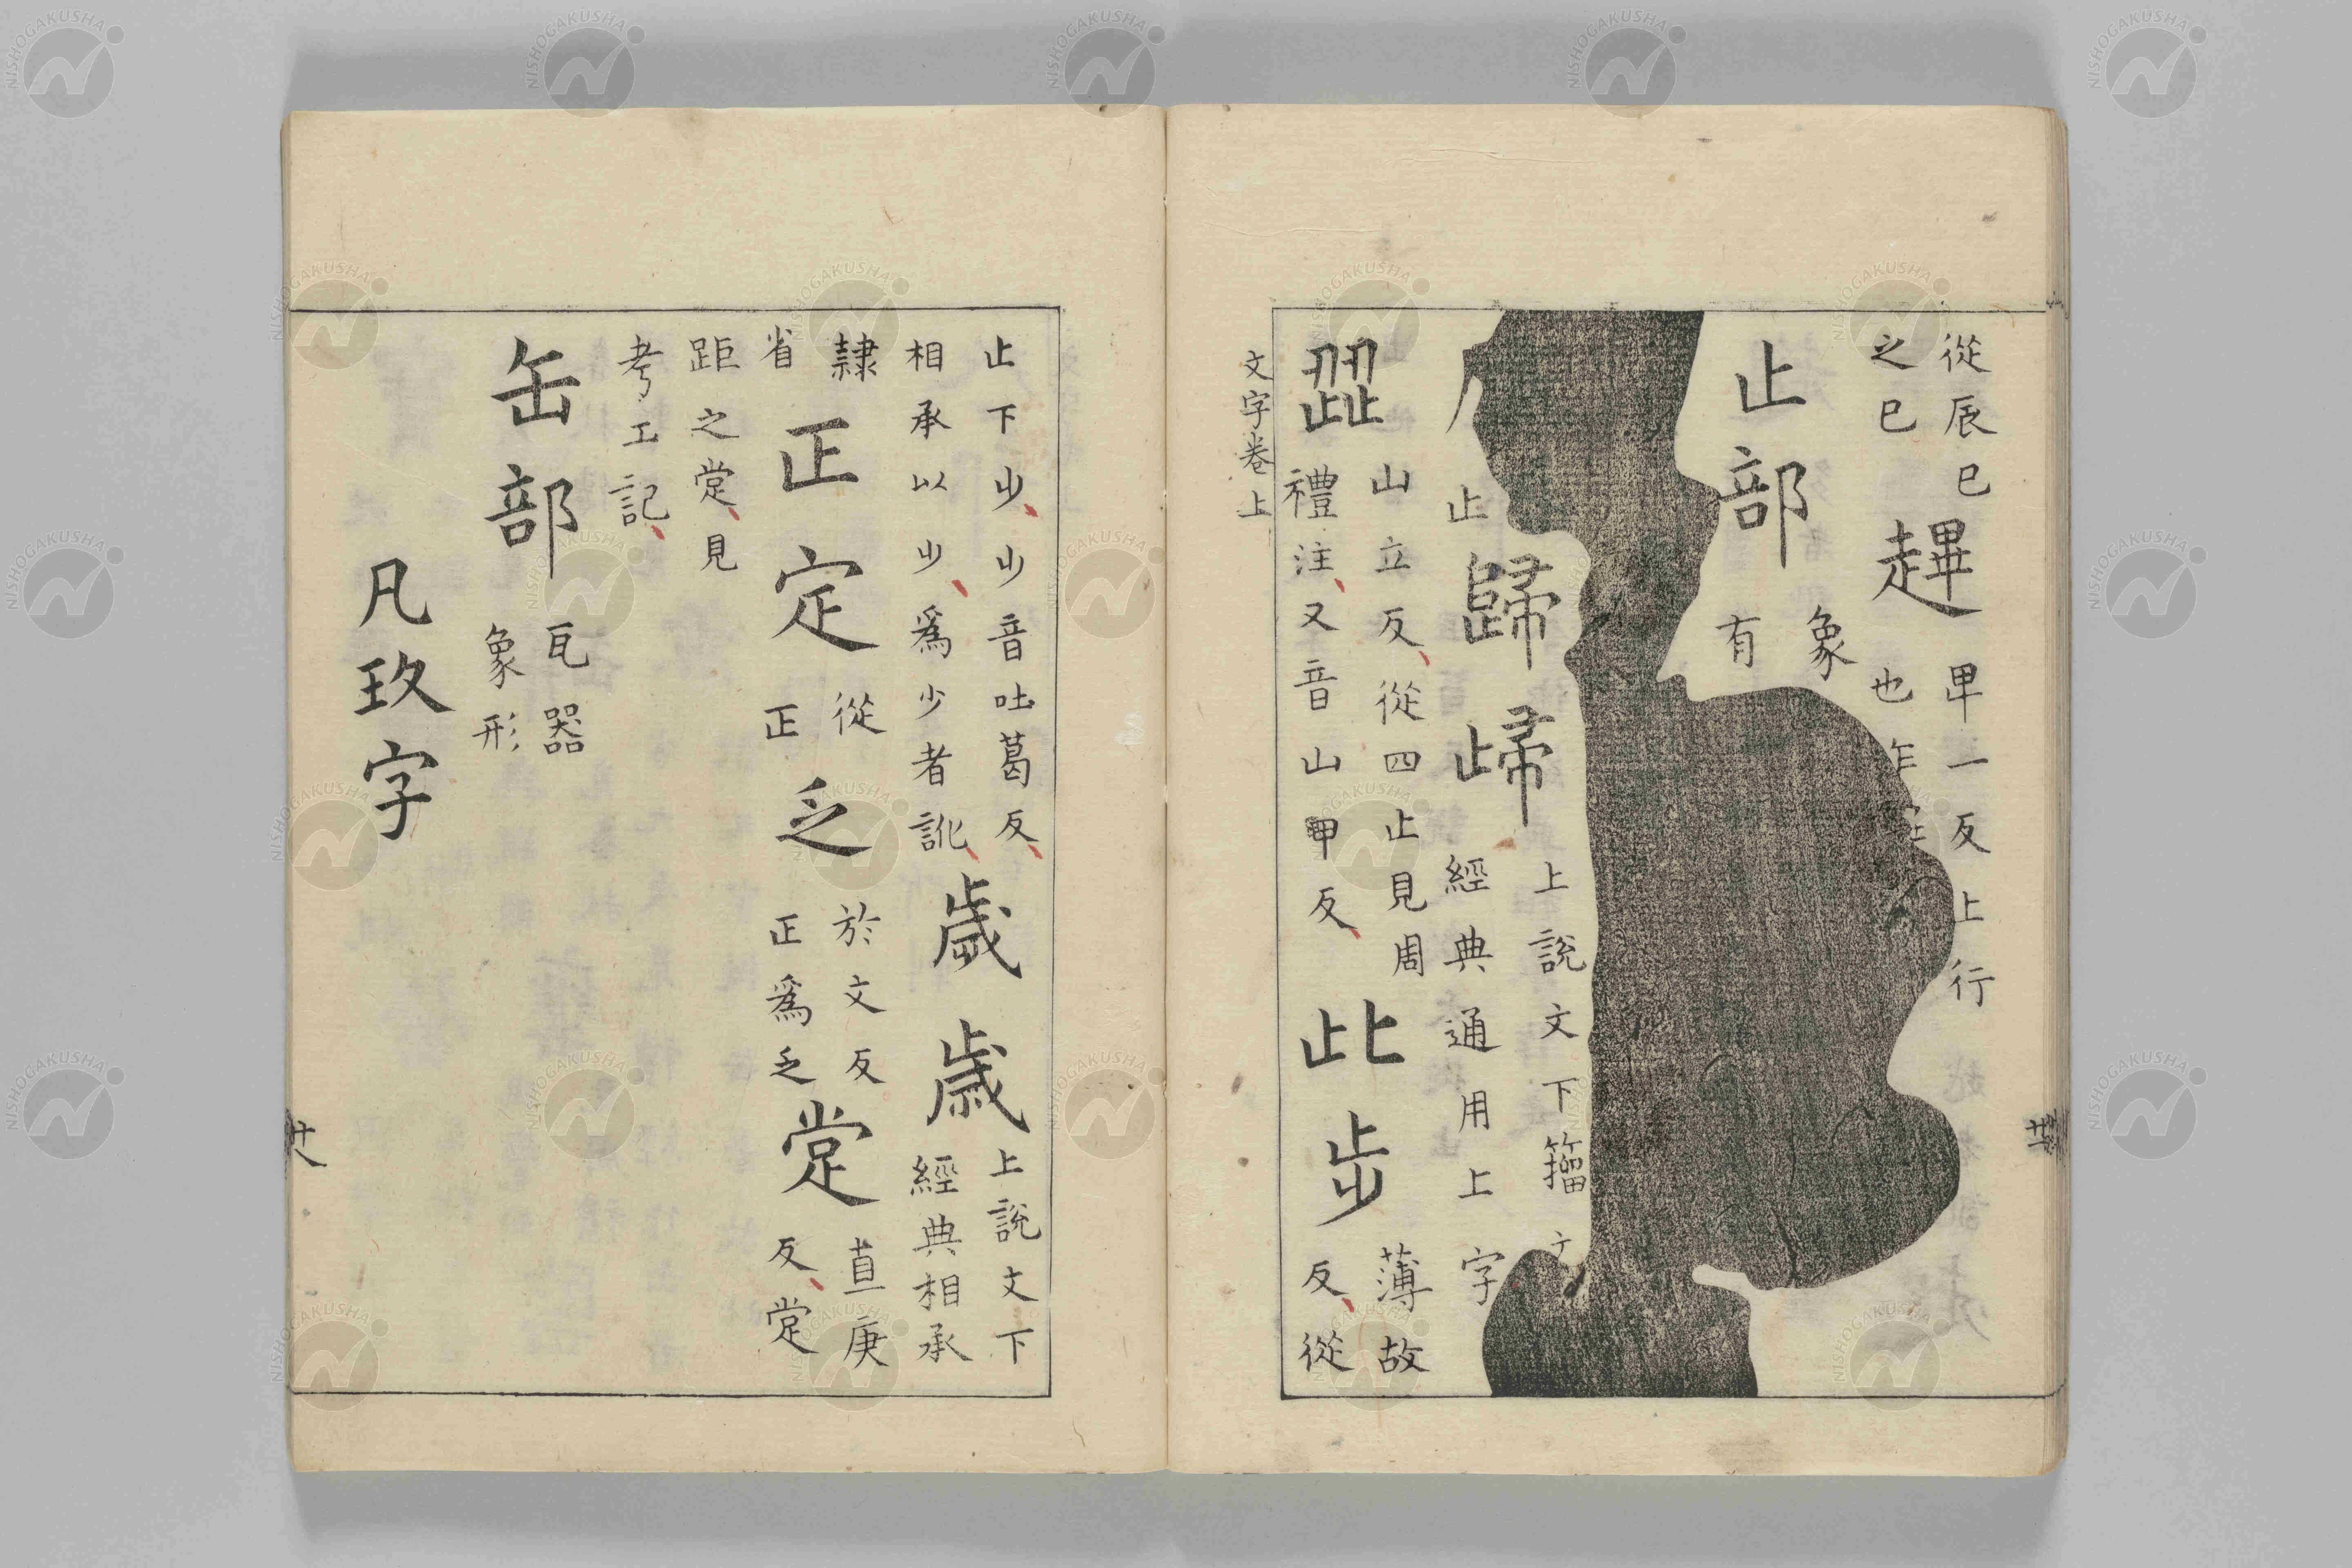 從辰巳
之巳
趩
甲一反上行
也
止部
象
有
止
歸歸
上說文下籒
經典通用上字
歰
山立反從四止見周
禮注又音山甲反
此步
薄故
反從
文字卷上
止下少少音吐葛反
相承以少為少者訛
歲歲
上說文下
經典相承
隸
省
正定
從
正
乏
於文反
正爲乏
堂
直庚
反堂
距之堂見
考工記
缶部
瓦器
象形
凡玫字
廿八
NISHOGAKUSHA